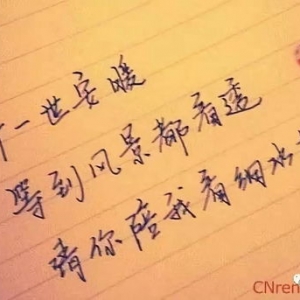 一世安暖
等到风景都看透
请你陪我看细水
CNren